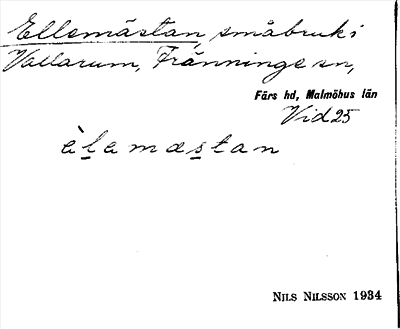 Ellemästan, småbruk i
Vallarum, Fränninge sn,
Färs hd, Malmöhus län
Vid 25
è l e m æ s t a n
NILS NILSSON 1934